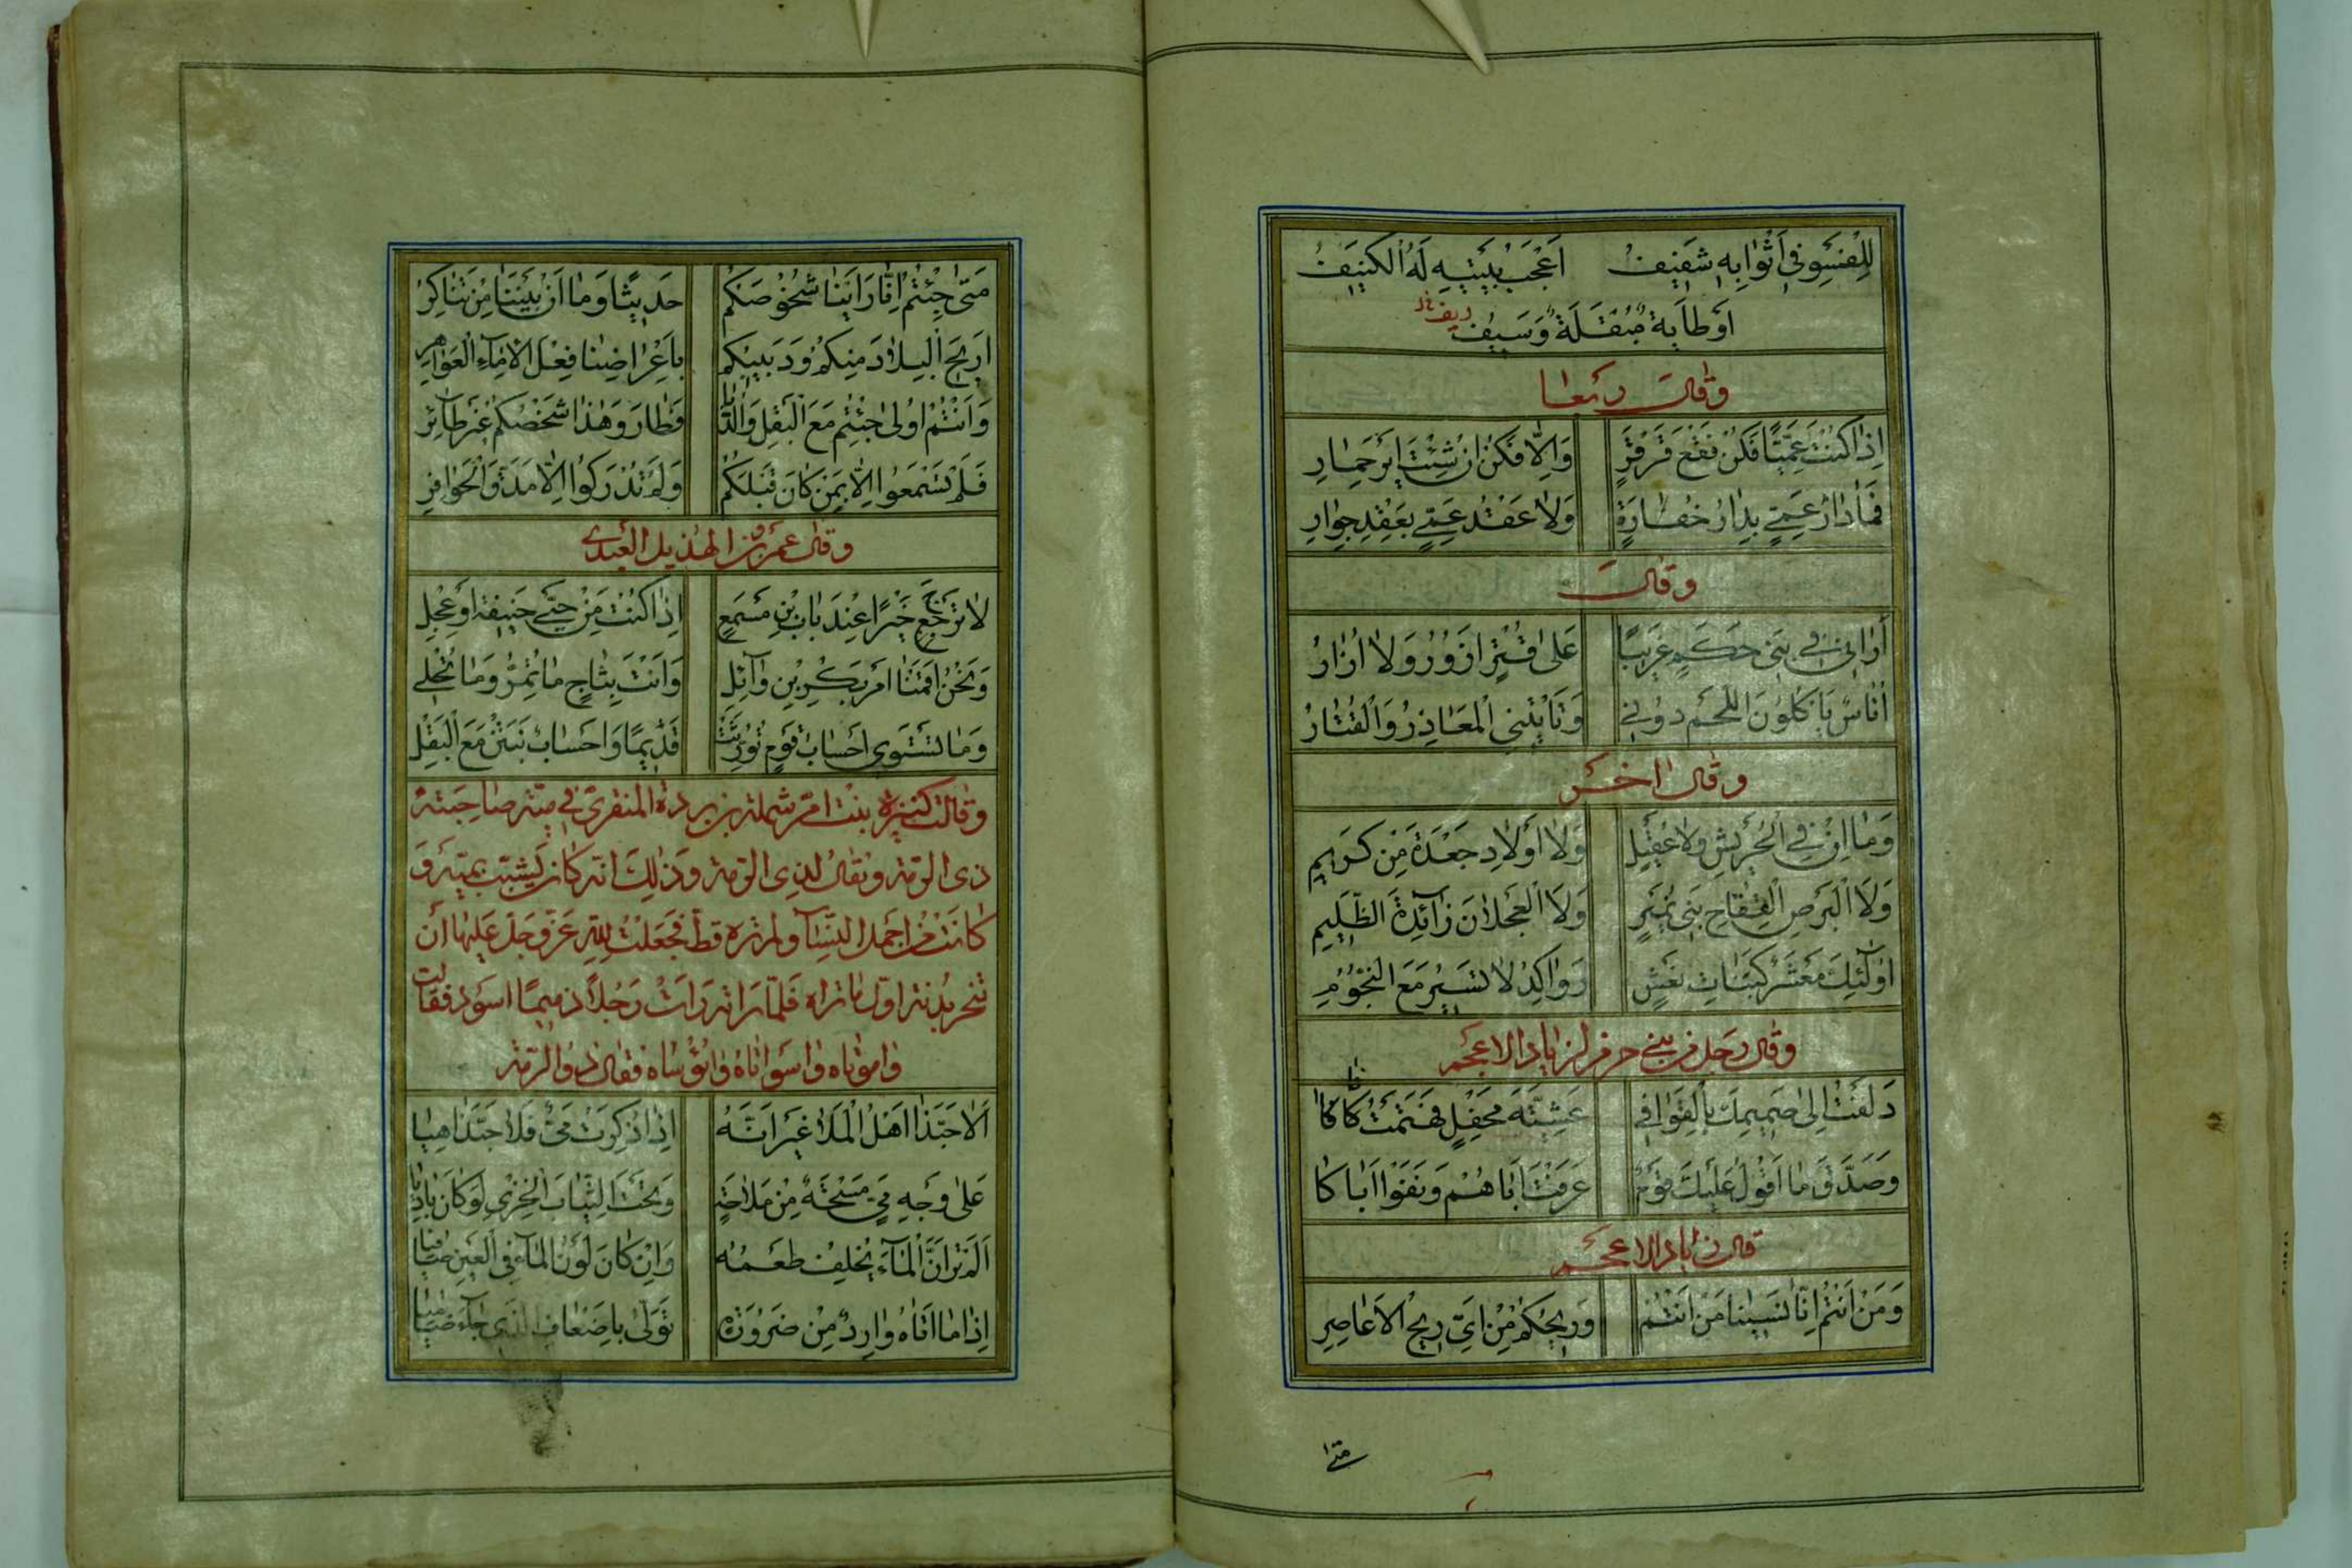 لِلْفَسْوِ فِي أَثْوَابِهِ شَفِيفُ اَعْجَبُ بَيْتَيْهِ لَهُ الْكَنِيفُ
اَوْطَابُهُ مُبْقَلَةٌ وَسِيفُ
وقال ايضا
اِذَا كُنْتَ عَمِّيًّا فَكُنْ فَقْعَ قَرْقَرٍ وَاِلَّا فَكُنْ اِنْ شِئْتَ اَيْرَ حِمَارِ
فَمَا دَارُ عَمِّيٍّ بِدَارِ خُفَارَةٍ وَلَا عَقْدُ عَمِّيٍّ بِعَقْدِ جِوَارِ
وقال
أَرَانِي فِي بَنِي حَكَمٍ غَرِيبًا عَلَى قُتْرٍ اَزُورُ وَلَا اُزَارُ
اُنَاسٌ يَاْكُلُونَ اللَّحْمَ دُونِي وَتَاْتِينِي الْمَعَاذِرُ وَالْقُتَارُ
وقال اخر
وَمَا اِنْ فِي الْحَرِيشِ وَلَا عُقَيْلٍ وَلَا اَوْلَادِ جَعْدَةَ مِنْ كَرِيمِ
وَلَا الْبُرْصِ الْفِقَاحِ بَنِي نُمَيْرٍ وَلَا الْعَجْلَانِ زَائِدَةِ الظَّلِيمِ
اُولَئِكَ مَعْشَرٌ كَبَنَاتِ نَعْشٍ رَوَاكِدُ لَا تَسِيرُ مَعَ النُّجُومِ
وقال رجل من بني جرم لزياد الاعجم
دَلَفْتُ اِلَى صَمِيمِكَ بِالْقَوَافِي عَشِيَّةَ مَحْفِلٍ فَهَتَمْتُ فَاكَا
وَصَدَّقَ مَا اَقُولُ عَلَيْكَ قَوْمٌ عَرَفْتُ اَبَاهُمْ وَنَفَوْا اَبَاكَا
قال زياد الاعجم
وَمَنْ اَنْتُمُ اِنَّا نَسِينَا مَنْ اَنْتُمُ وَرِيحُكُمْ مِنْ اَيِّ رِيحِ الْاَعَاصِرِ
متى
مَتَى جِئْتُمُ اِنَّا رَاَيْنَا شُخُوصَكُمْ حَدِيثًا وَمَا اِنْ بَيْنَنَا مِنْ تَنَاكُرِ
اَرِيحَ الْبِلَادِ مِنْكُمُ وَدَبِيبُكُمْ بِاَعْرَاضِنَا فِعْلَ الْاِمَاءِ الْعَوَاهِرِ
وَاَنْتُمْ اُولَى جِئْتُمْ مَعَ الْبَقْلِ وَالدَّبَا فَطَارَ وَهٰذَا شَخْصُكُمْ غَيْرُ طَائِرِ
فَلَمْ تَسْمَعُوا اِلَّا بِمَنْ كَانَ قَبْلَكُمْ وَلَمْ تُدْرِكُوا اِلَّا مَدَقَّ الْحَوَافِرِ
وقال عمرو بن الهذيل العبدي
لَا تَرْجُ خَيْرًا عِنْدَ بَابِ بْنِ مِسْمَعٍ اِذَا كُنْتَ مِنْ حَيَّيْ حَنِيفَةَ اَوْ عِجْلِ
وَنَحْنُ اَقَمْنَا اَمْرَ بَكْرِ بْنِ وَائِلٍ وَاَنْتَ بِثَاجٍ مَا تُمِرُّ وَمَا تُحْلِي
وَمَا تَسْتَوِي اَحْسَابُ قَوْمٍ تُوُرِّثَتْ قَدِيمًا وَاَحْسَابٌ نَبَتْنَ مَعَ الْبَقْلِ
وقالت كنيزة بنت ام شملة بن بردة المنقري في مية صاحبته
ذي الرمة ويقال لذي الرمة وذلك انه كان يشبب بمية و
كانت من اجمل النساء ولم تره قط فجعلت لله عز وجل عليها أن
تنحر بدنة اول ما تراه فلما راته رات رجلا دميما اسود فقالت
واسواتاه وابؤساه فقال ذو الرمة
اَلَا حَبَّذَا اَهْلُ الْمَلَا غَيْرَ اَنَّهُ اِذَا ذُكِرَتْ مَيٌّ فَلَا حَبَّذَا هِيَا
عَلَى وَجْهِ مَيٍّ مَسْحَةٌ مِنْ مَلَاحَةٍ وَتَحْتَ الثِّيَابِ الْخِزْيُ لَوْ كَانَ بَادِيَا
اَلَمْ تَرَ اَنَّ الْمَاءَ يُخْلِفُ طَعْمُهُ وَاِنْ كَانَ لَوْنُ الْمَاءِ فِي الْعَيْنِ صَافِيَا
اِذَا مَا اَتَاهُ وَارِدٌ مِنْ ضَرُورَةٍ تَوَلَّى بِاَضْعَافِ الَّذِي جَاءَ ظَامِيَا